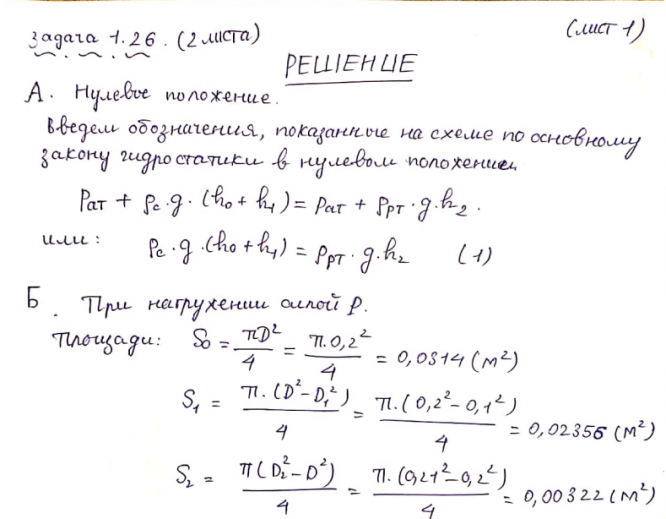 Задача 1.26. (2 листа)
(лист 1)
РЕШЕНИЕ
А. Нулевое положение.
Введем обозначения, показанные на схеме по основному
закону гидростатики в нулевом положении
Pат + ρс·g·(h0+h1) = Pат + ρрт·g·h2.
или: ρс·g·(h0+h1) = ρрт·g·h2 (1)
Б. При нагружении силой P.
Площади: S0 = πD²/4 = π·0,2²/4 = 0,0314 (м²)
S1 = π·(D²−D1²)/4 = π·(0,2²−0,1²)/4 = 0,02356 (м²)
S2 = π(D2²−D²)/4 = π·(0,21²−0,2²)/4 = 0,00322 (м²)